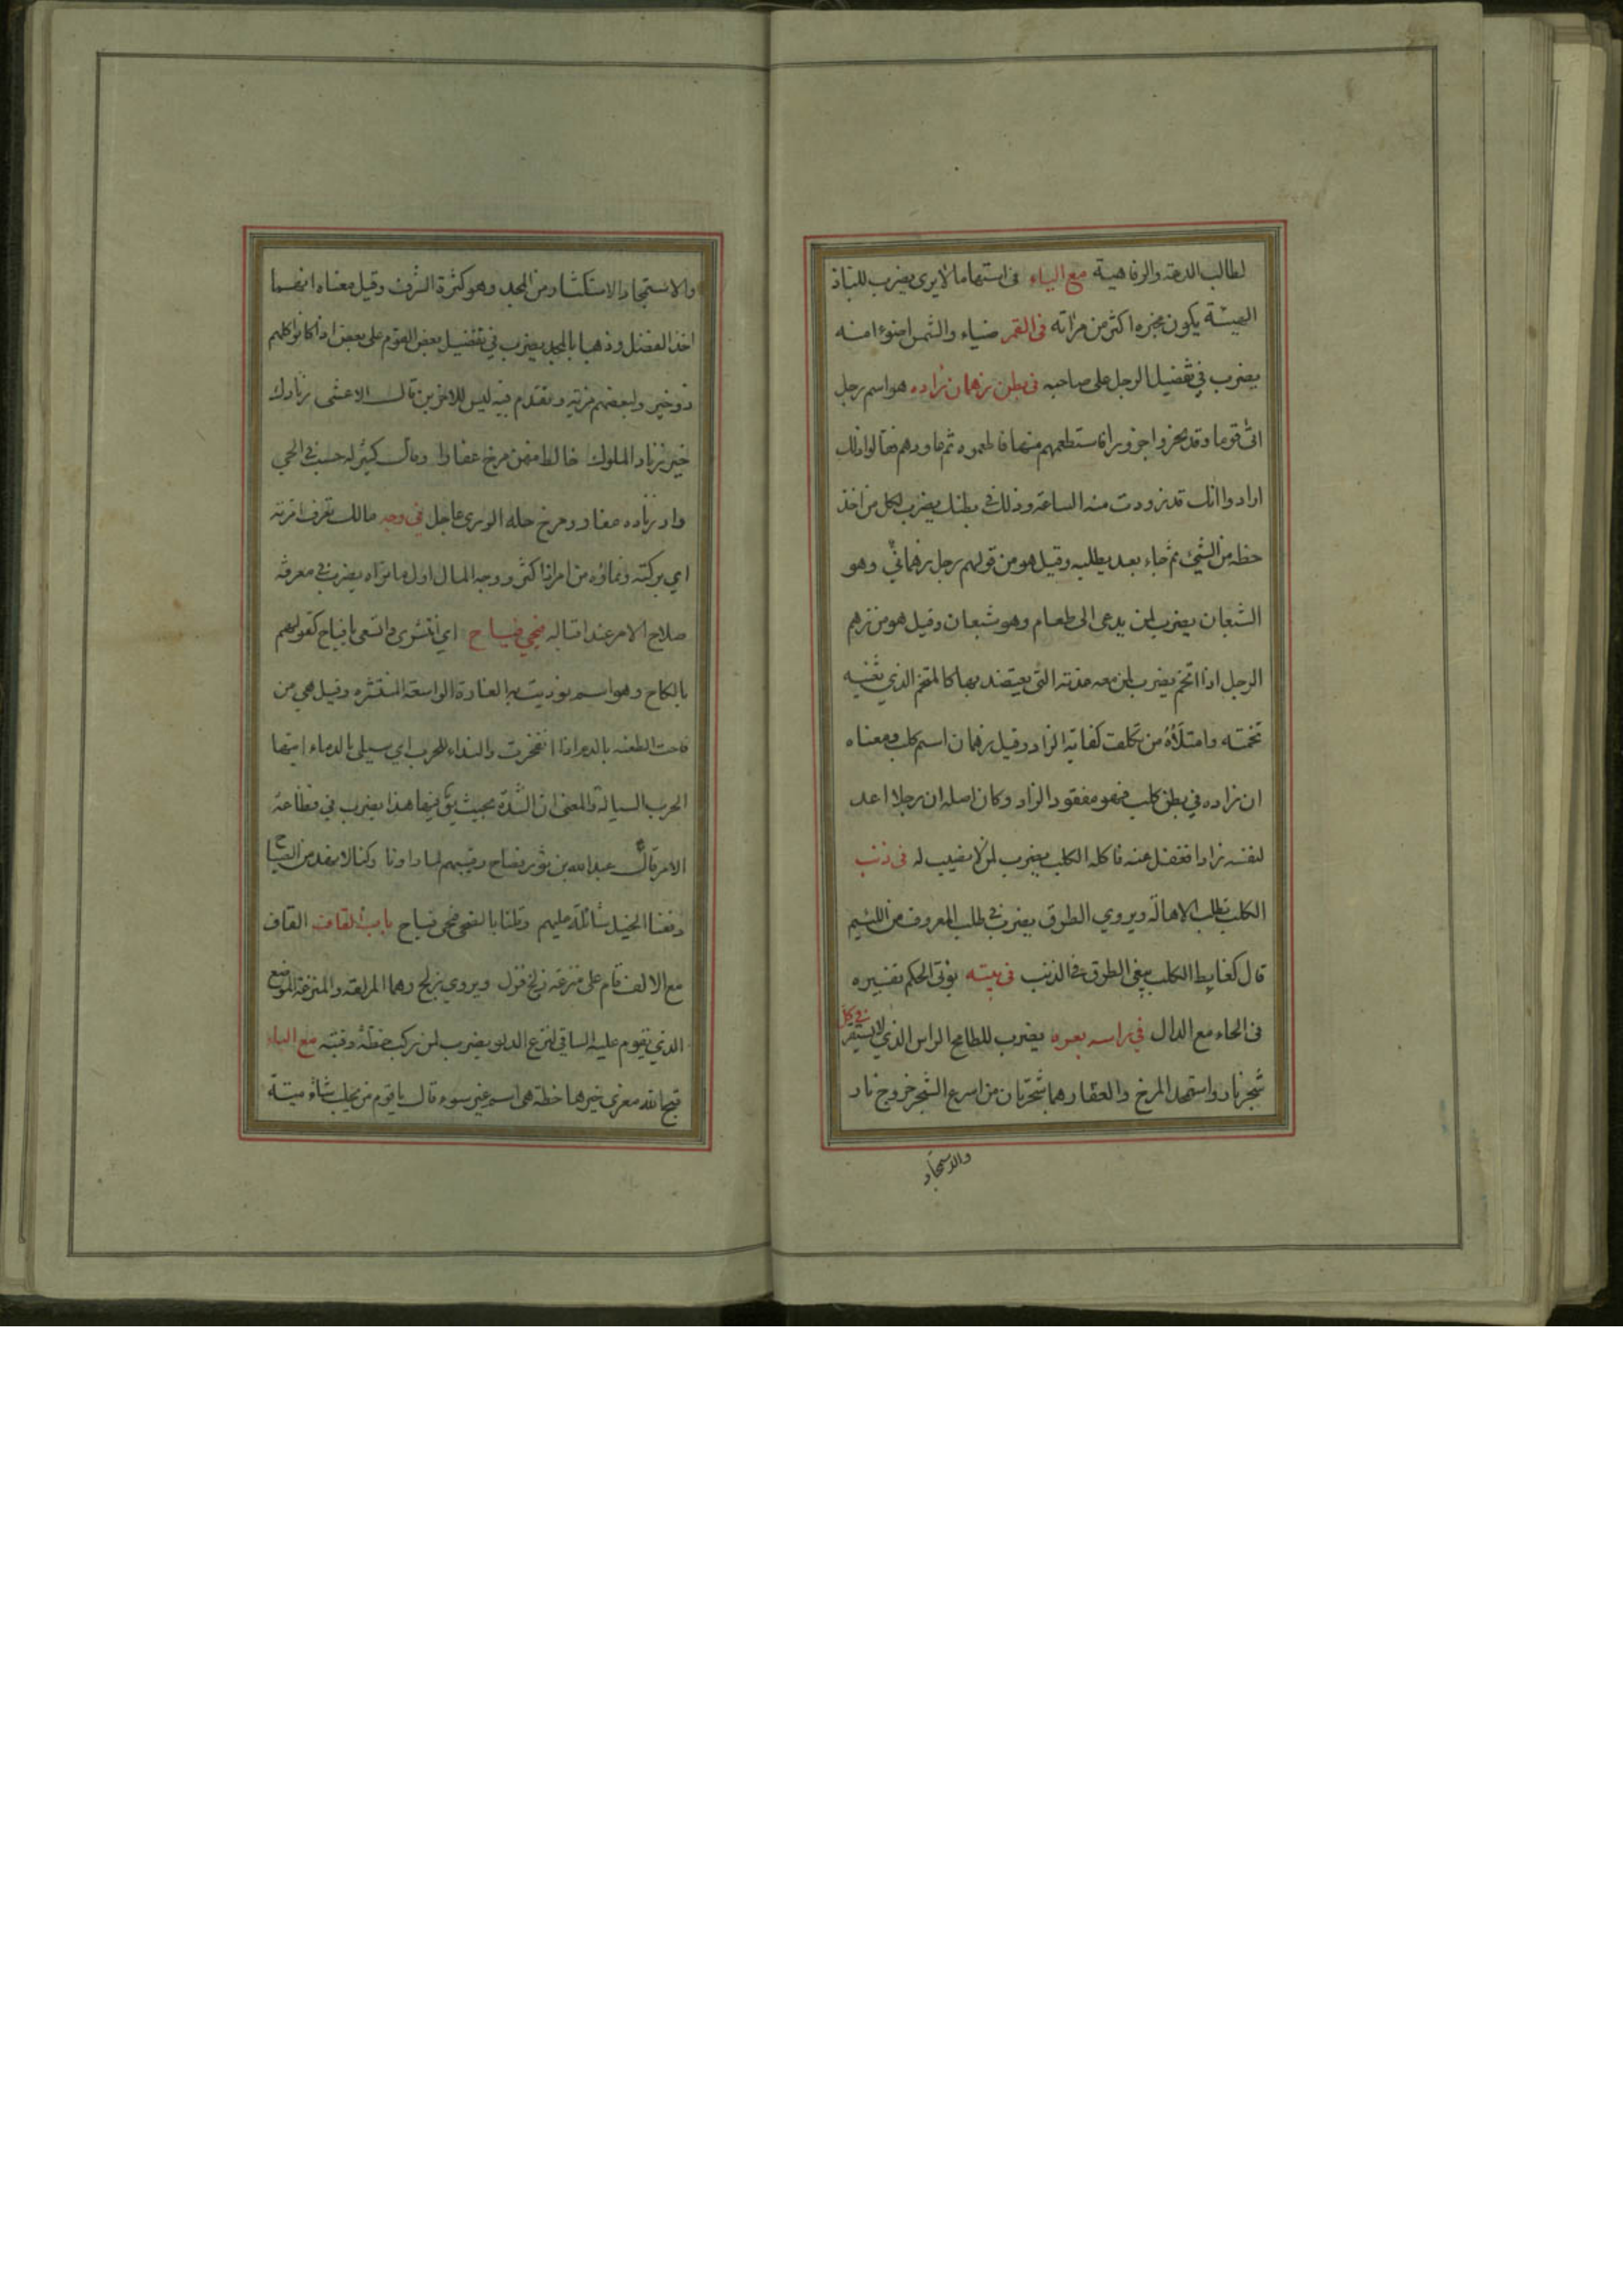 لطالب الدعة والرفاهية مع الياء فى استها ما لا يرى يضرب للباذ
الهيئة يكون مخبره اكثر من مرآته فى القمر ضياء والشمس اضوء منه
يضرب في تفضيل الرجل على صاحبه فى بطن زهمان زاده هو اسم رجل
اتى قوما وقد نحروا جزورا فاستطعمهم منها فاطعموه ثم عاودهم فقالوا ذلك
ارادوا انك قد تزودت منه الساعة وذلك في بطنك يضرب لكل من اخذ
حظه من الشيئ ثم جاء بعد يطلبه وقيل هو من قولهم رجل زهماني وهو
الشبعان يضرب لمن يدعى الى طعام وهو شبعان وقيل هو من زهم
الرجل اذا اتخم يضرب لمن معه عدته التي يعتضد بها كالمتخم الذي تغنيه
تخمته وامتلاؤه من تكلف كفاية الزاد وقيل زهمان اسم كلب ومعناه
ان زاده في بطن كلب فهو مفقود الزاد وكان اصله ان رجلا اعد
لنفسه زادا فغفل عنه فاكله الكلب يضرب لمن لا نصيب له فى ذنب
الكلب تطلب الاهالة ويروي الطرق يضرب في طلب المعروف من اللئيم
قال كغابط الكلب يبغي الطرق في الذنب فى بيته يؤتى الحكم تفسيره
فى الحاء مع الدال في راسه نعرة يضرب للطامح الراس الذي لا يستقر في كل
شجر نار واستمجد المرخ والعفار هما شجرتان من اسرع الشجر خروج نار
والاستمجاد
والاستمجاد الاستكثار من المجد وهو كثرة الشرف وقيل معناه انهما
اخذا الفضل وذهبا بالمجد يضرب في تفضيل بعض القوم على بعض اذا كانوا كلهم
ذو خير ولبعضهم مزية وتقدم فيه ليس للاخرين قال الاعشى زنادك
خير زناد الملوك خالط منهن مرخ عفارا وقال كثير له حسب في الحي
وار زناده عفار ومرخ حله الورى عاجل في وجه مالك تعرف امرته
اي بركته ونماؤه من امر اذا كثر ووجه المال اول ما تراه يضرب في معرفة
صلاح الامر عند اقباله فيحي فياح اي انتشرى واتسعى يا فياح كقولهم
يا لكاح وهو اسم نوديت به الغارة الواسعة المنتشرة وقيل هي من
فاحت الطعنة بالدم اذا انفجرت والنداء للحرب اي سيلى بالدماء ايتها
الحرب السيالة والمعنى ان الشدة بحيث يق فيها هذا يضرب في فظاعة
الامر قال عبد الله بن ثور
دفعنا الخيل شائلة عليهم وقلنا بالضحى فيحى فياح باب القاف القاف
مع الالف قام على منزعة زلخ فزل ويروي بزلج وهما المزلقة والمنزعة الموضع
الذي يقوم عليه الساقى لنزع الدلو يضرب لمن يركب خطة وقته مع الباء
قبح الله معزى خيرها خطة هى اسم عنز سوء قال يا قوم من يحلب شاة ميتة